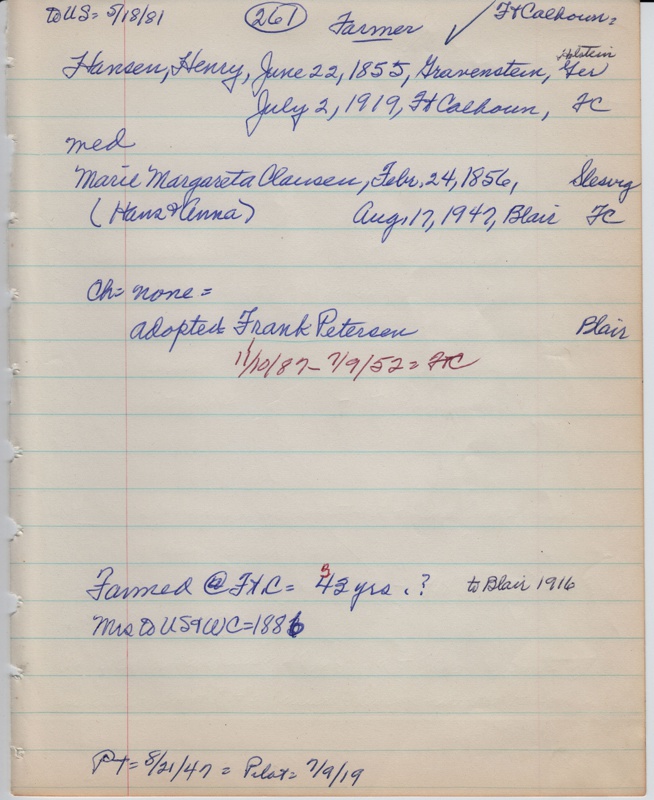 to US = 5/18/81 (261) Farmer ✓ Ft Calhoun =
Holstein
Hansen, Henry, June 22, 1855, Gravenstein, Ger
July 2, 1919, Ft Calhoun, FC
med
Marie Margareta Clausen, Febr. 24, 1856, Slesvig
(Hans & Anna) Aug. 17, 1947, Blair FC
Ch = none =
adopted Frank Petersen Blair
11/10/87 - 7/9/52 = FC
Farmed @ Ft C = 43 yrs . ? to Blair 1916
3
Mrs to US & WC = 1886
PT = 8/21/47 = Pilot = 7/9/19